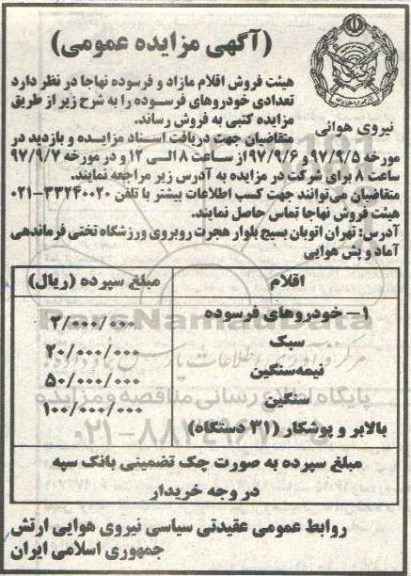 (آگهی مزایده عمومی)
نیروی هوائی
هیئت فروش اقلام مازاد و فرسوده نهاجا در نظر دارد
تعدادی خودروهای فرسوده را به شرح زیر از طریق
مزایده کتبی به فروش رساند.
متقاضیان جهت دریافت اسناد مزایده و بازدید در
مورخه ۹۷/۹/۵ و ۹۷/۹/۶ از ساعت ۸ الی ۱۲ و در مورخه ۹۷/۹/۷
ساعت ۸ برای شرکت در مزایده به آدرس زیر مراجعه نمایند.
متقاضیان می‌توانند جهت کسب اطلاعات بیشتر با تلفن ۳۳۲۴۰۰۲۰-۰۲۱
هیئت فروش نهاجا تماس حاصل نمایند.
آدرس: تهران اتوبان بسیج بلوار هجرت روبروی ورزشگاه تختی فرماندهی
آماد و پش هوایی
اقلام
مبلغ سپرده (ریال)
۱- خودروهای فرسوده
۲/۰۰۰/۰۰۰
سبک
۲۰/۰۰۰/۰۰۰
نیمه‌سنگین
۵۰/۰۰۰/۰۰۰
سنگین
۱۰۰/۰۰۰/۰۰۰
بالابر و پوشکار (۳۱ دستگاه)
ParsNamadData
مرکز فرآوری اطلاعات پارس نماد داده‌ها
پایگاه اطلاع رسانی مناقصه و مزایده
مبلغ سپرده به صورت چک تضمینی بانک سپه
در وجه خریدار
روابط عمومی عقیدتی سیاسی نیروی هوایی ارتش
جمهوری اسلامی ایران